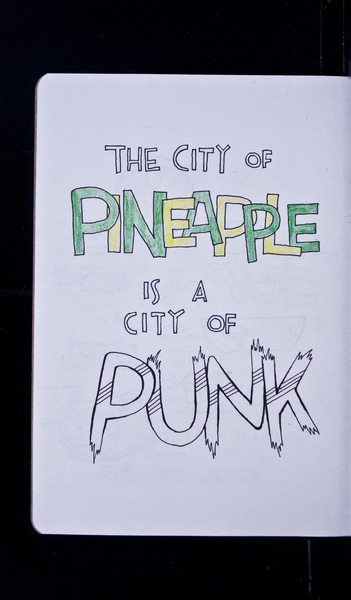 THE CITY OF
PINEAPPLE
IS A
CITY OF
PUNK